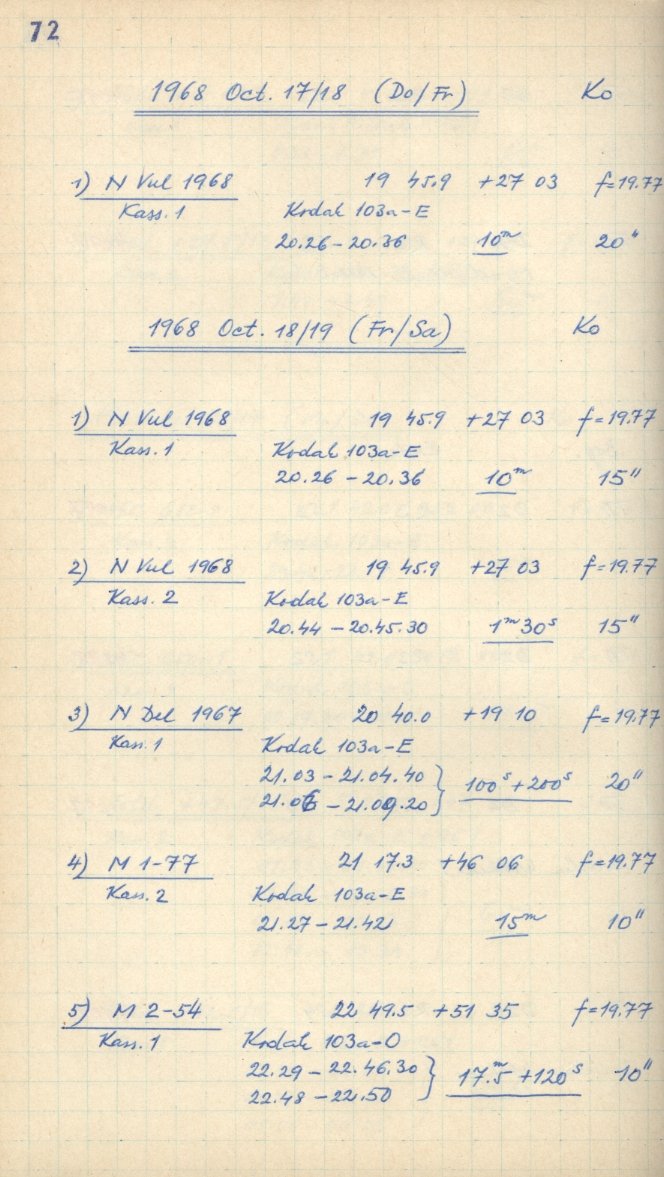 72
1968 Oct. 17/18 (Do/Fr) Ko
1) N Vul 1968 19 45.9 +27 03 f=19.77
Kass. 1 Kodak 103a-E
20.26 - 20.36 10ᵐ 20"
1968 Oct. 18/19 (Fr/Sa) Ko
1) N Vul 1968 19 45.9 +27 03 f=19.77
Kass. 1 Kodak 103a-E
20.26 - 20.36 10ᵐ 15"
2) N Vul 1968 19 45.9 +27 03 f=19.77
Kass. 2 Kodak 103a-E
20.44 - 20.45.30 1ᵐ30ˢ 15"
3) N Del 1967 20 40.0 +19 10 f=19.77
Kass. 1 Kodak 103a-E
21.03 - 21.04.40 } 100ˢ+200ˢ 20"
21.06 - 21.09.20
4) M 1-77 21 17.3 +46 06 f=19.77
Kass. 2 Kodak 103a-E
21.27 - 21.42 15ᵐ 10"
5) M 2-54 22 49.5 +51 35 f=19.77
Kass. 1 Kodak 103a-O
22.29 - 22.46.30 } 17.ᵐ5 +120ˢ 10"
22.48 - 22.50